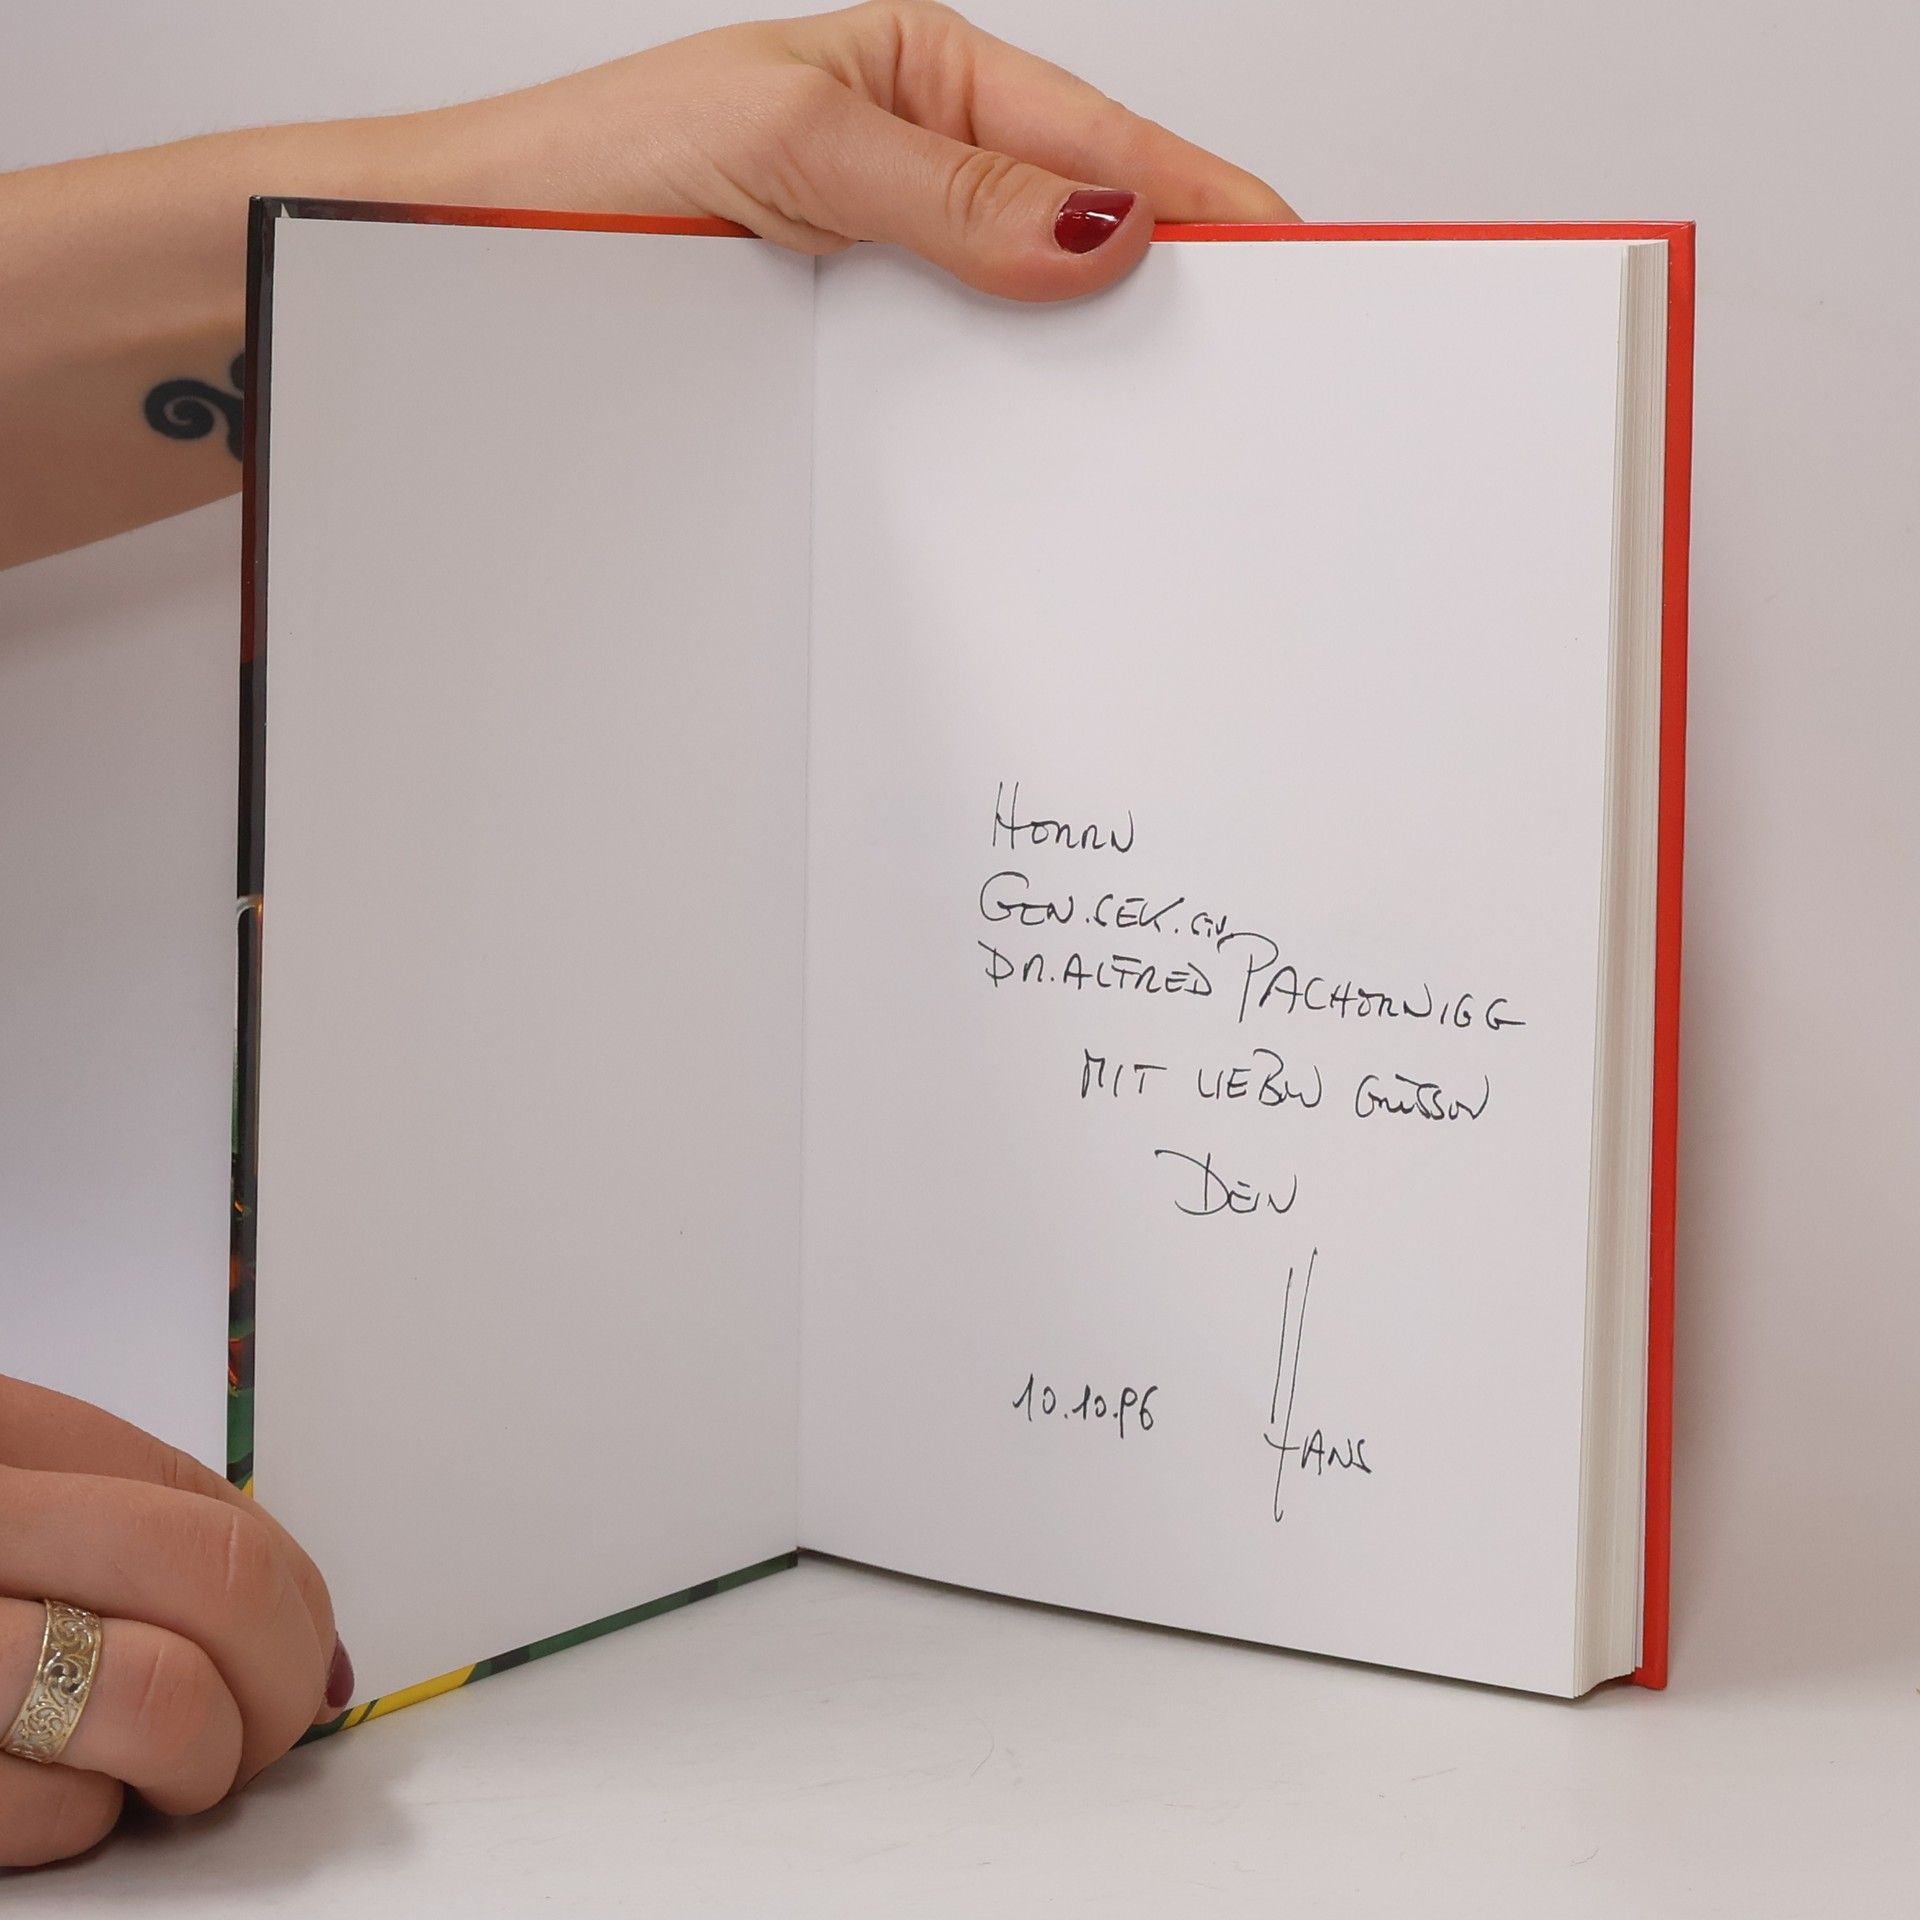 Herrn
Gen.Sek.
Dr. Alfred Pachernigg
mit lieben Grüssen
Dein
Hans
10.10.96